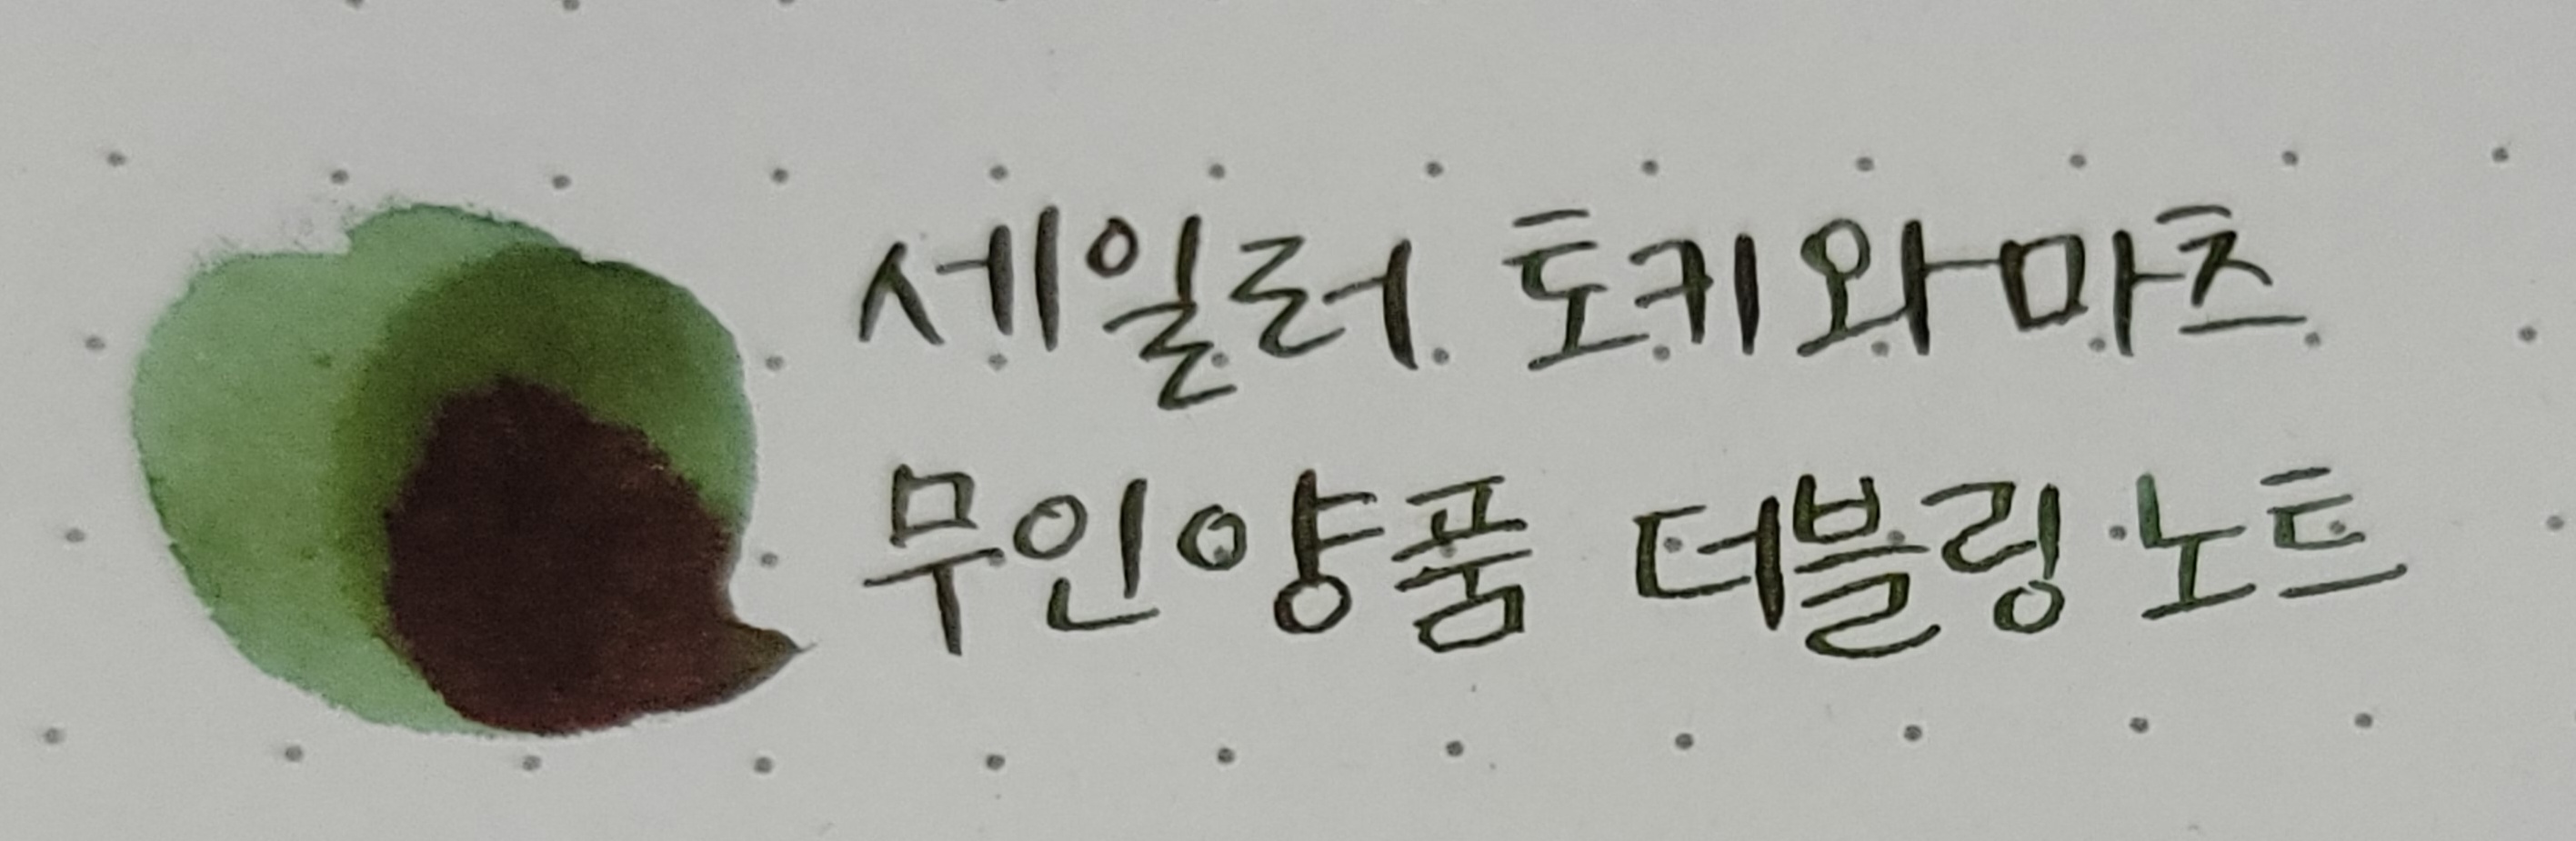 세일러 토키와마츠
무인양품 더블링 노트